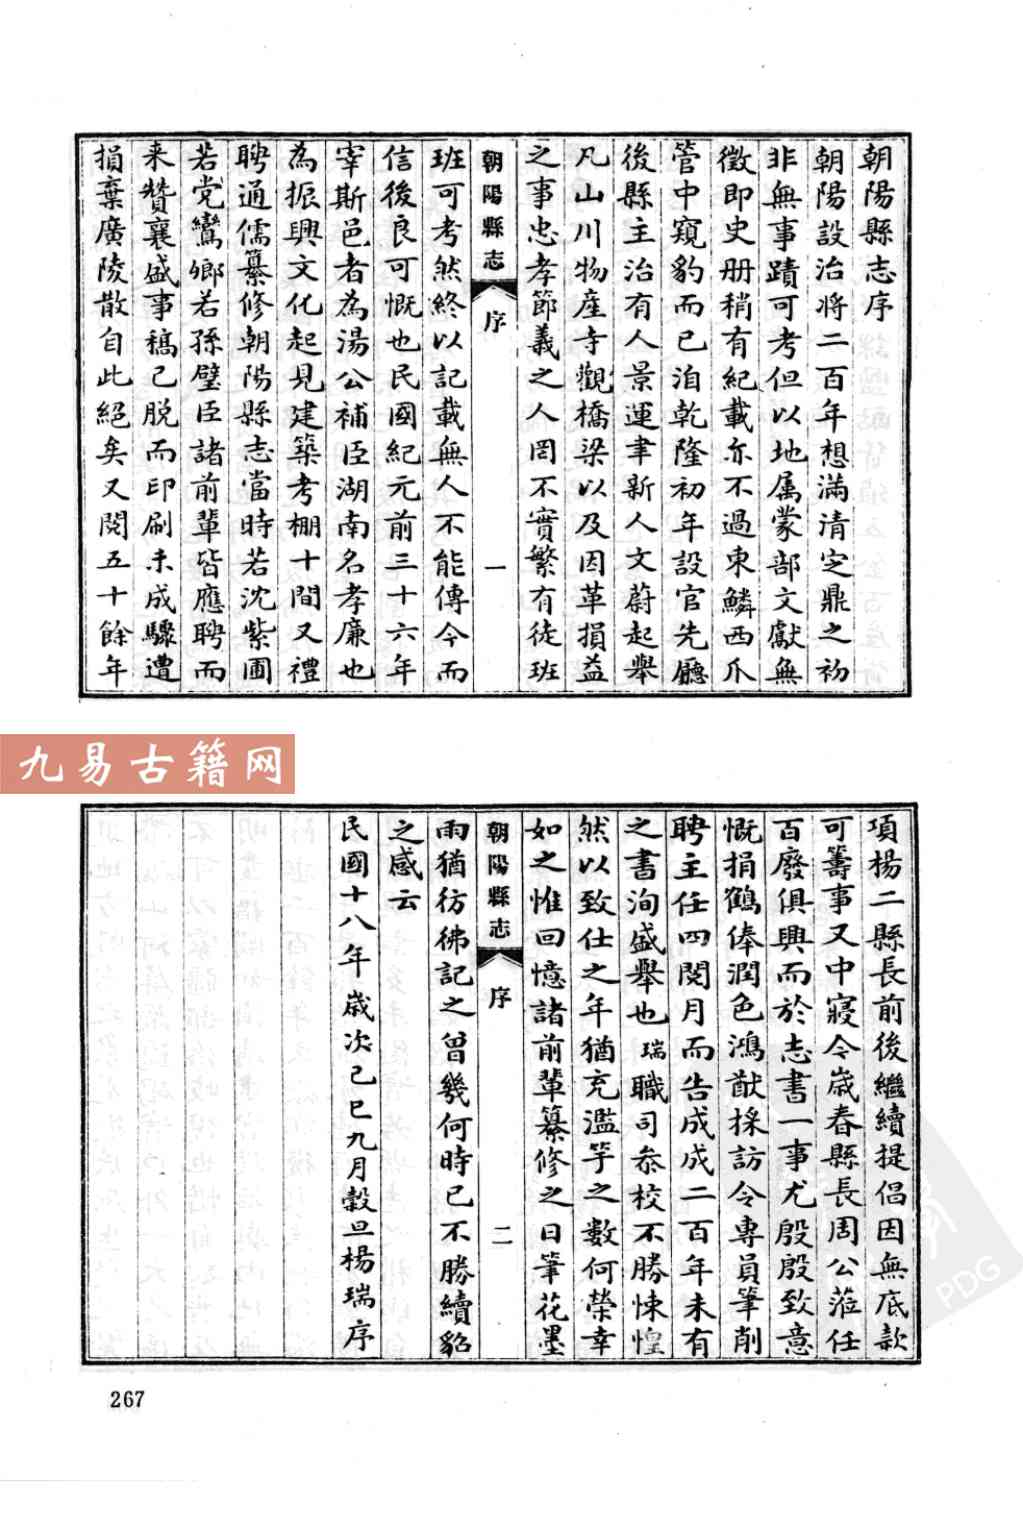 朝陽縣志序
朝陽設治將二百年想滿清定鼎之初
非無事蹟可考但以地属蒙部文獻無
徵即史册稍有紀載亦不過東鱗西爪
管中窺豹而已洎乾隆初年設官先廳
後縣主治有人景運聿新人文蔚起舉
凡山川物産寺觀橋梁以及因革損益
之事忠孝節義之人罔不實繁有徒班
朝陽縣志 序 一
班可考然終以記載無人不能傳今而
信後良可慨也民國紀元前三十六年
宰斯邑者為湯公補臣湖南名孝廉也
為振興文化起見建築考棚十間又禮
聘通儒纂修朝陽縣志當時若沈紫圃
若党鸞卿若孫璧臣諸前輩皆應聘而
来贊襄盛事稿已脱而印刷未成驟遭
損棄廣陵散自此絕矣又閱五十餘年
九易古籍网
項楊二縣長前後繼續提倡因無底款
可籌事又中寢今歲春縣長周公蒞任
百廢俱興而於志書一事尤殷殷致意
慨捐鶴俸潤色鴻猷採訪令專員筆削
聘主任四閱月而告成成二百年未有
之書洵盛舉也瑞職司叅校不勝悚惶
然以致仕之年猶充濫竽之數何榮幸
如之惟回憶諸前輩纂修之日筆花墨
朝陽縣志 序 二
雨猶彷彿記之曾幾何時已不勝續貂
之感云
民國十八年歲次己巳九月穀旦楊瑞序
267
PDG